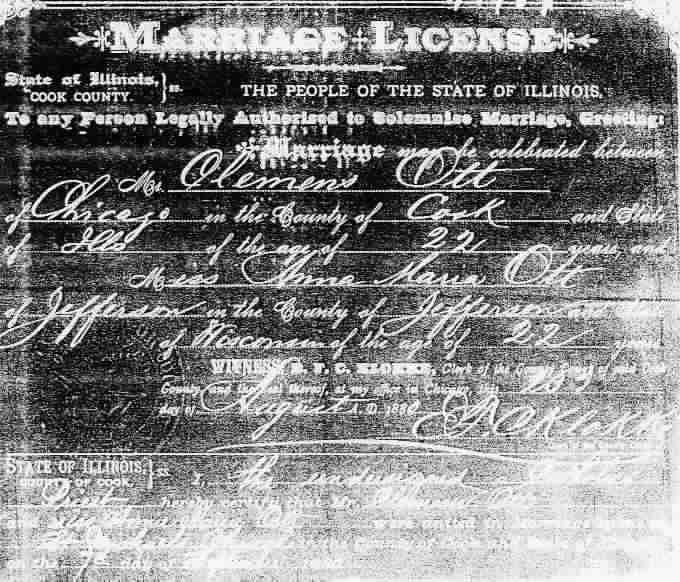 MARRIAGE LICENSE
State of Illinois, } ss.
COOK COUNTY.
THE PEOPLE OF THE STATE OF ILLINOIS,
To any Person Legally Authorized to Solemnize Marriage, Greeting:
Marriage may be celebrated between
Mr. Clemens Ott
of Chicago in the County of Cook and State
of Ills of the age of 22 years, and
Miss Anna Maria Ott
of Jefferson in the County of Jefferson and State
of Wisconsin of the age of 22 years.
WITNESS E. F. C. KLOKKE, Clerk of the County Court of said Cook
County and the seal thereof, at my office in Chicago, this
day of August A. D. 1880
STATE OF ILLINOIS, } ss.
COUNTY OF COOK.
I, the undersigned
Priest hereby certify that Mr. Clemens Ott
and Miss Anna Maria Ott were united in Marriage
County of Cook and State of
on the 7th day of